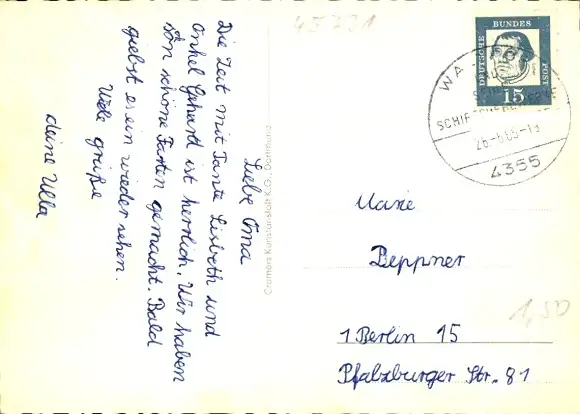 45731
Liebe Oma
Die Zeit mit Tante Lisbeth und
Onkel Gehard ist herrlich. Wir haben
schon schöne Farten gemacht. Bald
giebst es ein wieder sehen.
Viele grüße
deine Ulla
Cramers Kunstanstalt KG, Dortmund
DEUTSCHE BUNDES POST
15
4355
Marie
Peppner
1 Berlin 15
Pfalzburger Str. 81
1,50